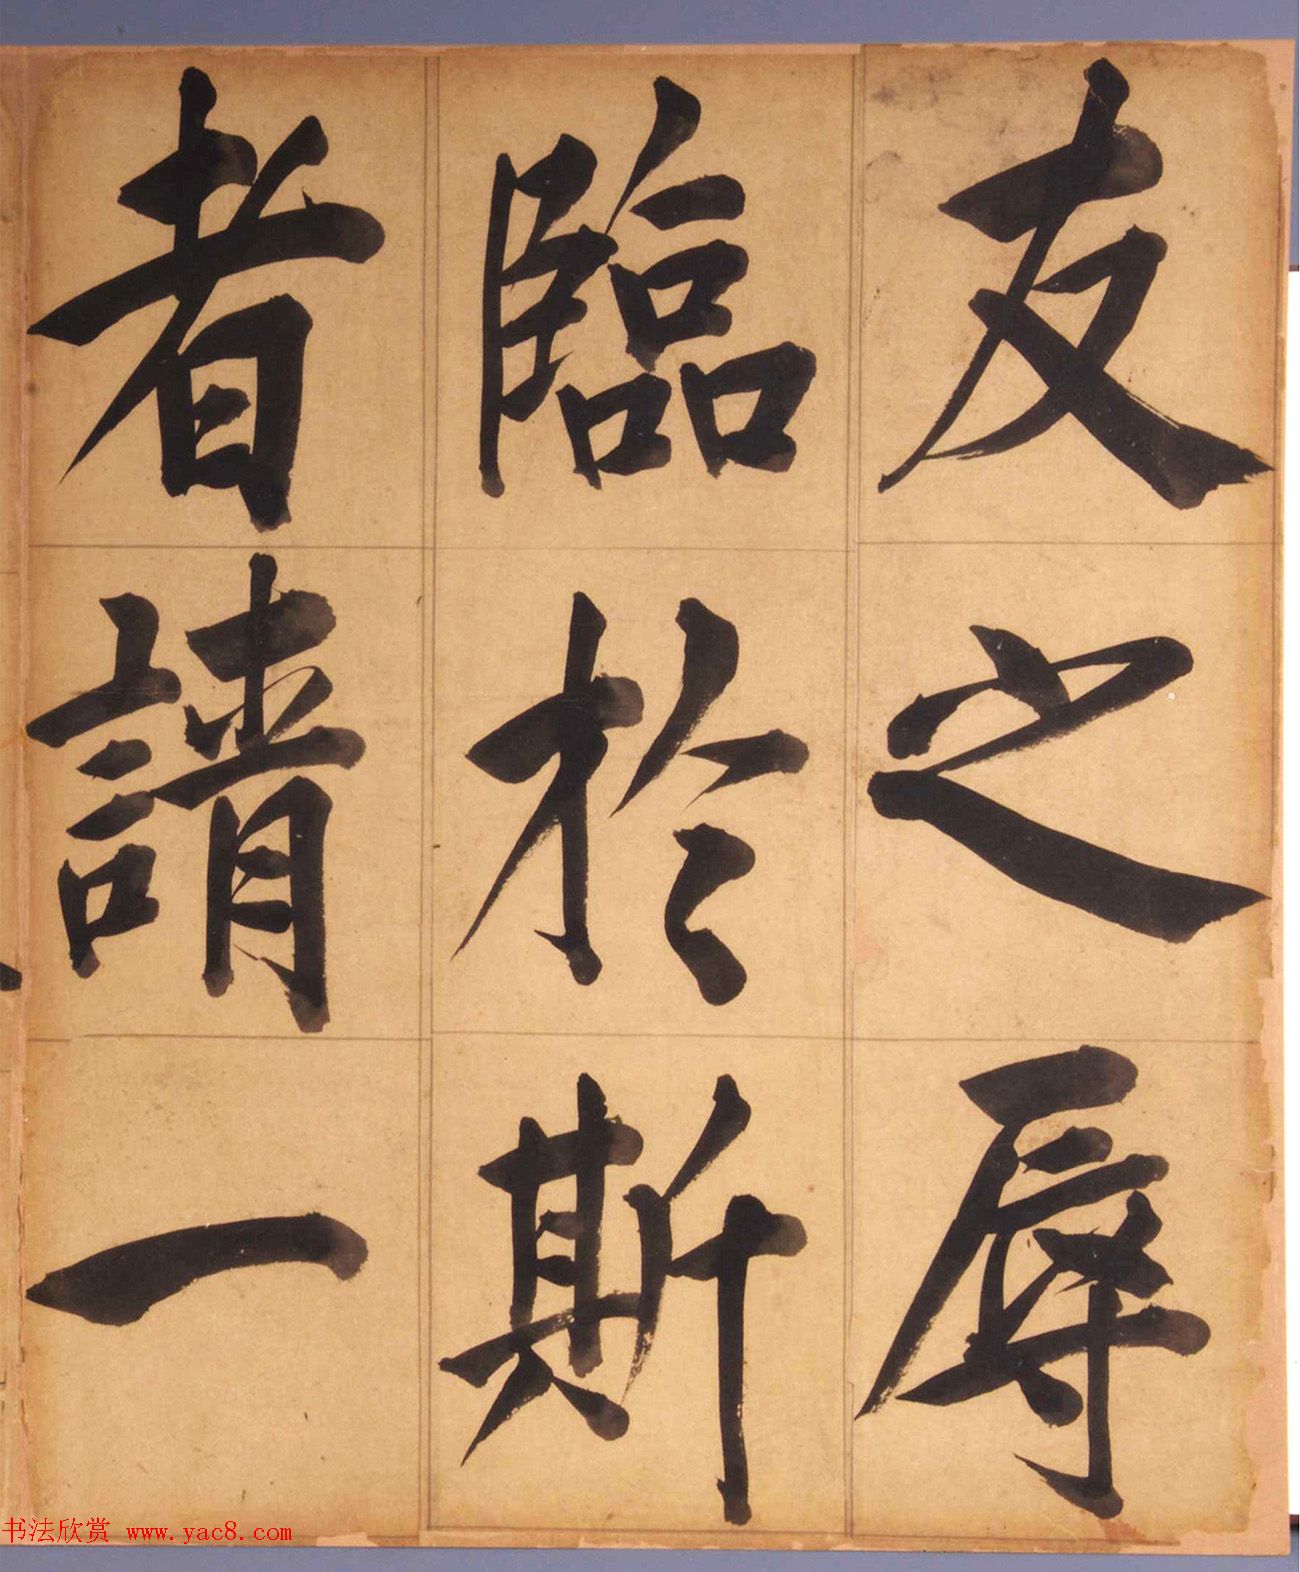 友之辱
臨於斯
者請一
书法欣赏 www.yac8.com